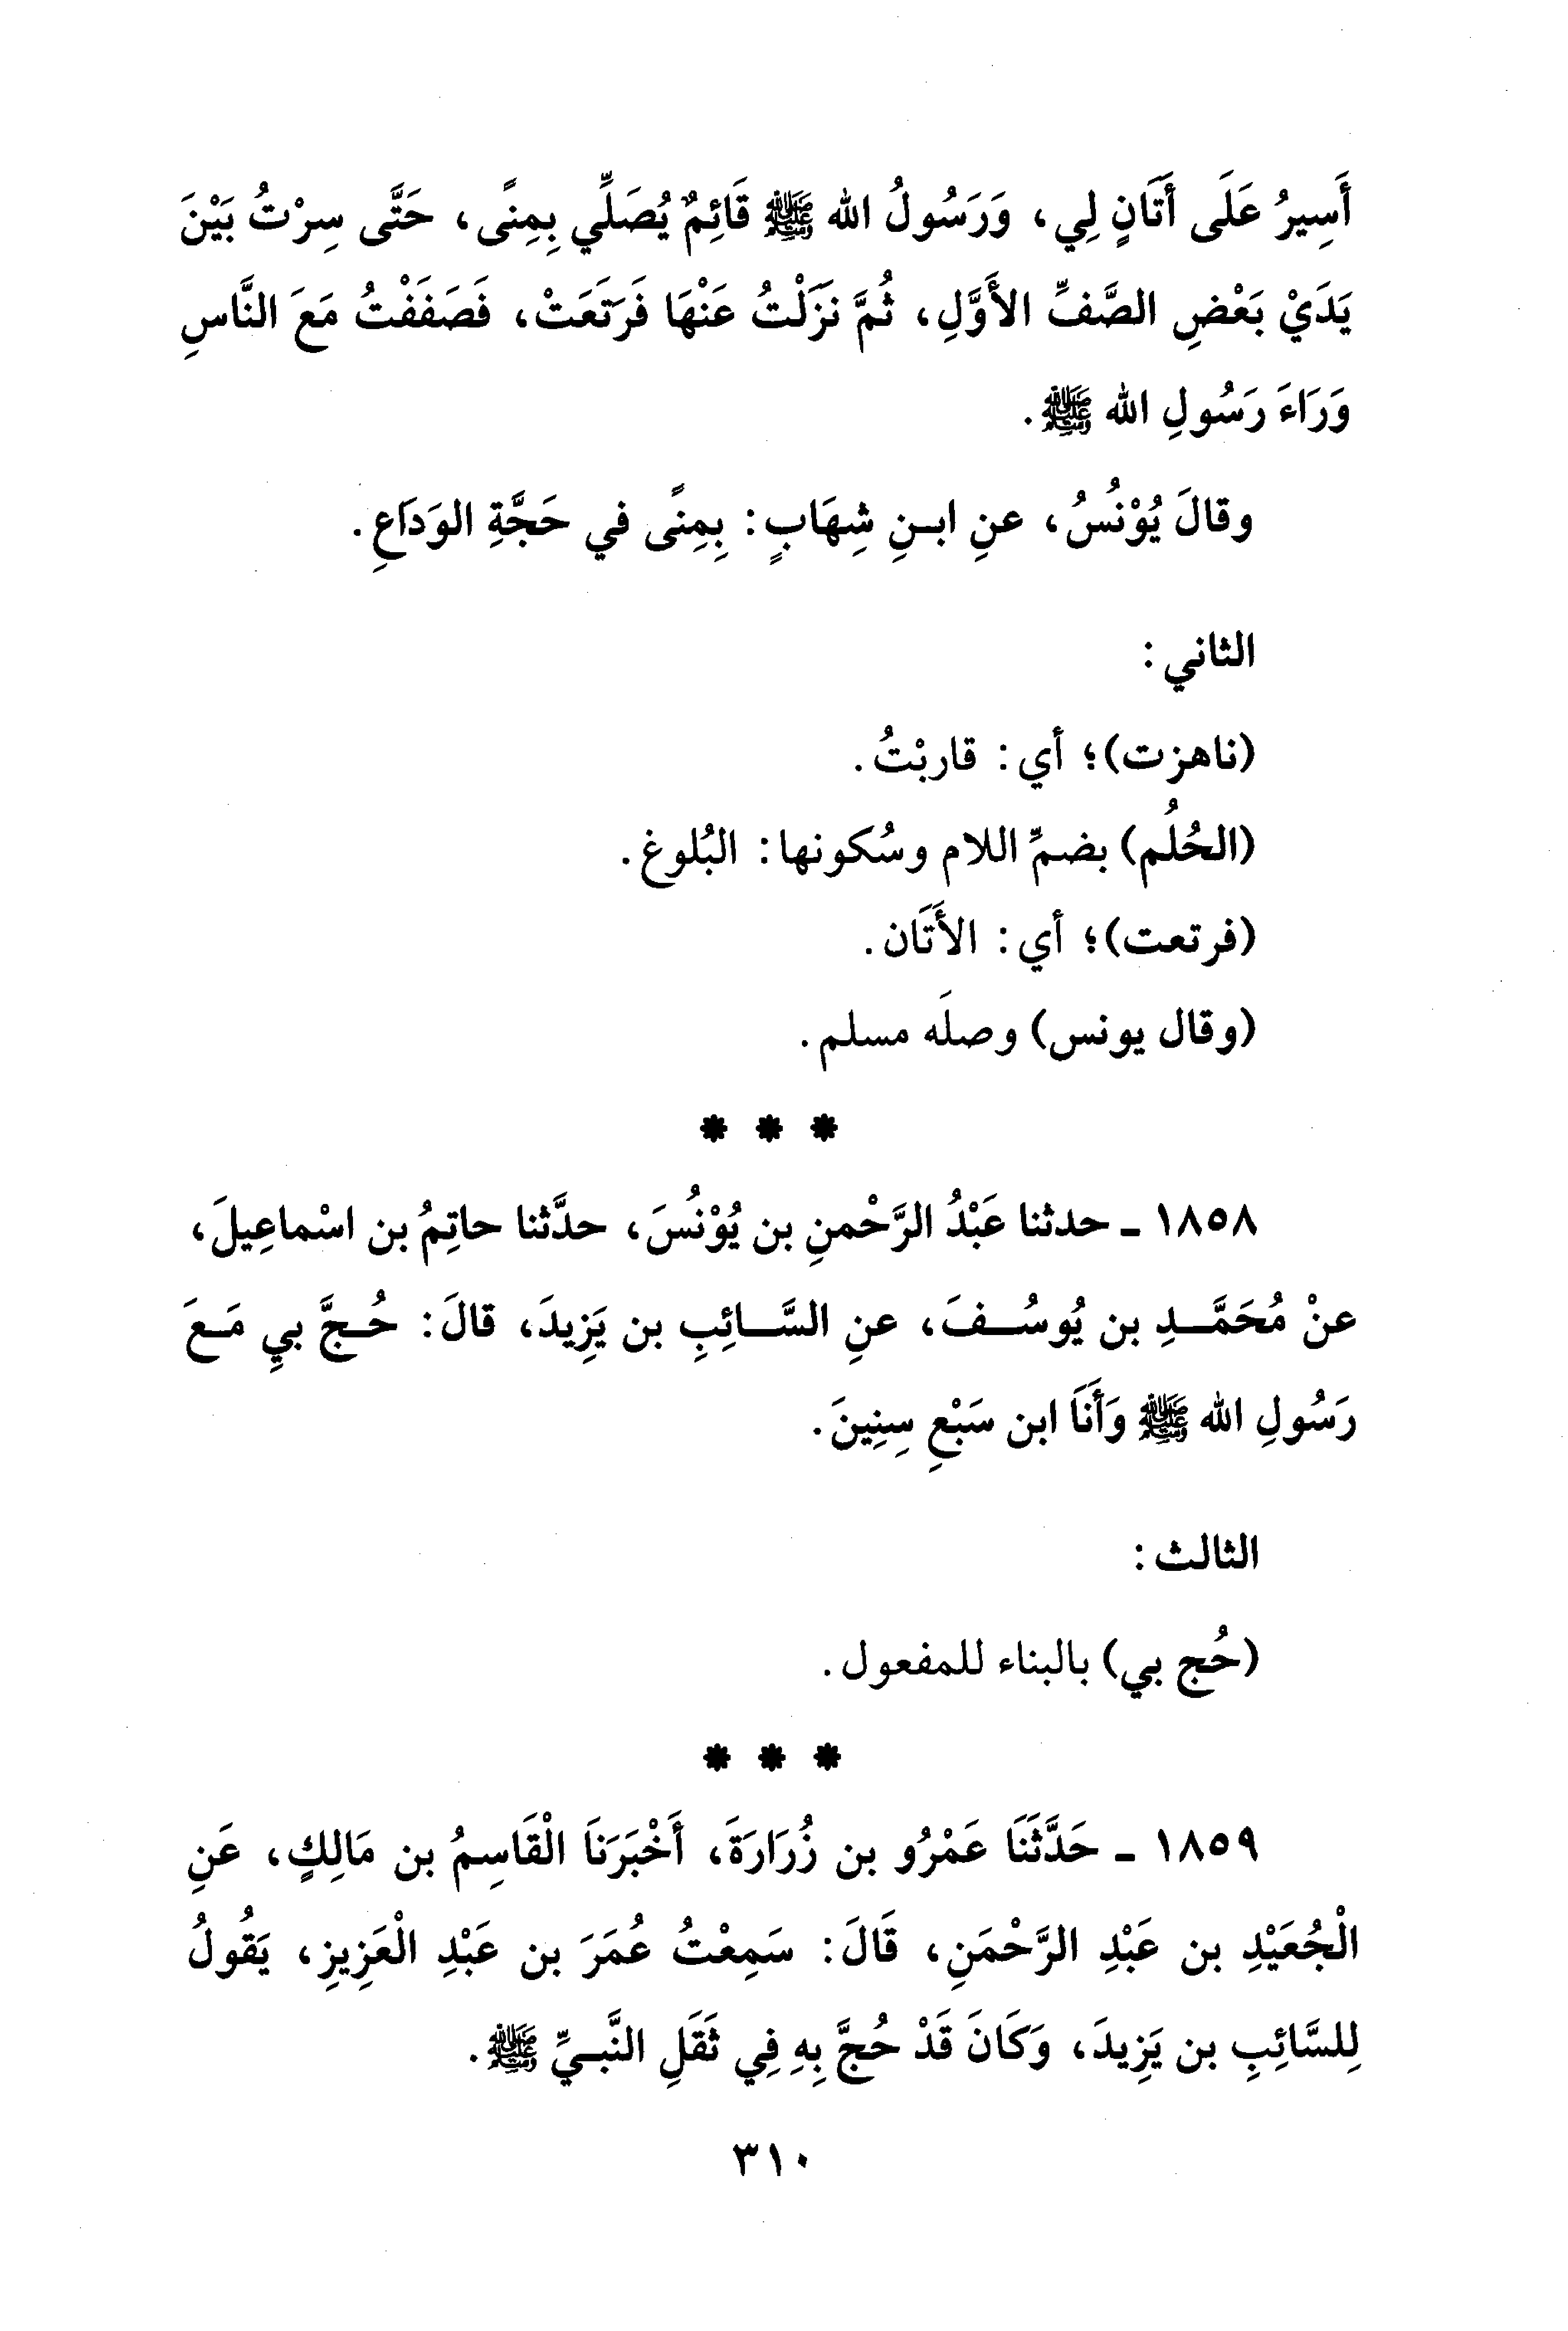 أَسِيرُ عَلَى أَتَانٍ لِي، وَرَسُولُ الله ﷺ قَائِمٌ يُصَلِّي بِمِنًى، حَتَّى سِرْتُ بَيْنَ
يَدَيْ بَعْضِ الصَّفِّ الأَوَّلِ، ثُمَّ نَزَلْتُ عَنْهَا فَرَتَعَتْ، فَصَفَفْتُ مَعَ النَّاسِ
وَرَاءَ رَسُولِ الله ﷺ.
وقالَ يُوْنُسُ، عنِ ابنِ شِهَابٍ: بِمِنًى في حَجَّةِ الوَدَاعِ.
الثاني:
(ناهزت)؛ أي: قاربْتُ.
(الحُلُم) بضمِّ اللام وسُكونها: البُلوغ.
(فرتعت)؛ أي: الأَتَان.
(وقال يونس) وصلَه مسلم.
* * *
١٨٥٨ ـ حدثنا عَبْدُ الرَّحْمنِ بن يُوْنُسَ، حدَّثنا حاتِمُ بن اسْماعِيلَ،
عنْ مُحَمَّدِ بن يُوسُفَ، عنِ السَّائِبِ بن يَزِيدَ، قالَ: حُجَّ بي مَعَ
رَسُولِ الله ﷺ وَأَنَا ابن سَبْعِ سِنِينَ.
الثالث:
(حُج بي) بالبناء للمفعول.
* * *
١٨٥٩ ـ حَدَّثَنَا عَمْرُو بن زُرَارَةَ، أَخْبَرَنَا الْقَاسِمُ بن مَالِكٍ، عَنِ
الْجُعَيْدِ بن عَبْدِ الرَّحْمَنِ، قَالَ: سَمِعْتُ عُمَرَ بن عَبْدِ الْعَزِيزِ، يَقُولُ
لِلسَّائِبِ بن يَزِيدَ، وَكَانَ قَدْ حُجَّ بِهِ فِي ثَقَلِ النَّبيِّ ﷺ.
٣١٠